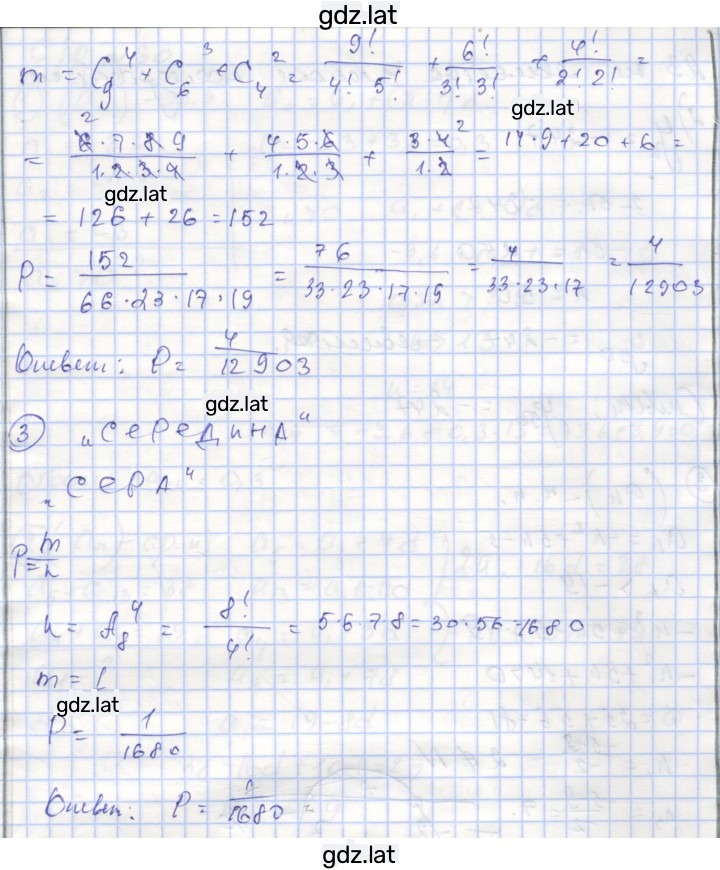 gdz.lat
m = C₉⁴ + C₆³ + C₄² = 9!/(4! 5!) + 6!/(3! 3!) + 4!/(2! 2!) =
gdz.lat
= (6·7·8·9)/(1·2·3·4) + (4·5·6)/(1·2·3) + (3·4)/(1·2) = 14·9 + 20 + 6 =
gdz.lat
= 126 + 26 = 152
P = 152/(66·23·17·19) = 76/(33·23·17·19) = 4/(33·23·17) = 4/12903
Ответ: P = 4/12903
gdz.lat
3 „СеРеДиНА"
„СеРА"
P = m/n
n = A₈⁴ = 8!/4! = 5·6·7·8 = 30·56 = 1680
m = 1
gdz.lat
P = 1/1680
Ответ: P = 1/1680
gdz.lat